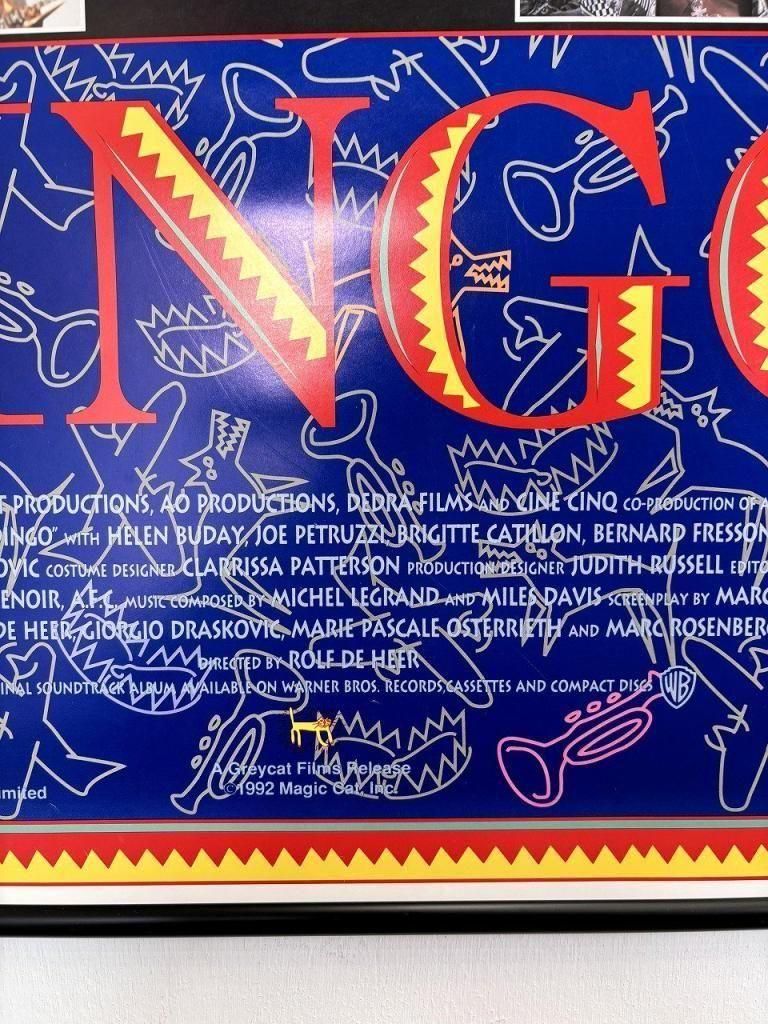 INGO
T PRODUCTIONS, AO PRODUCTIONS, DEDRA FILMS AND CINE CINQ CO-PRODUCTION OF A
DINGO" WITH HELEN BUDAY, JOE PETRUZZI, BRIGITTE CATILLON, BERNARD FRESSON
OVIC COSTUME DESIGNER CLARRISSA PATTERSON PRODUCTION DESIGNER JUDITH RUSSELL EDITO
ENOIR, A.F.C. MUSIC COMPOSED BY MICHEL LEGRAND AND MILES DAVIS SCREENPLAY BY MARC
DE HEER, GIORGIO DRASKOVIC, MARIE PASCALE OSTERRIETH AND MARC ROSENBERG
DIRECTED BY ROLF DE HEER
INAL SOUNDTRACK ALBUM AVAILABLE ON WARNER BROS. RECORDS, CASSETTES AND COMPACT DISCS WB
A Greycat Films Release
imited ©1992 Magic Cat, Inc.